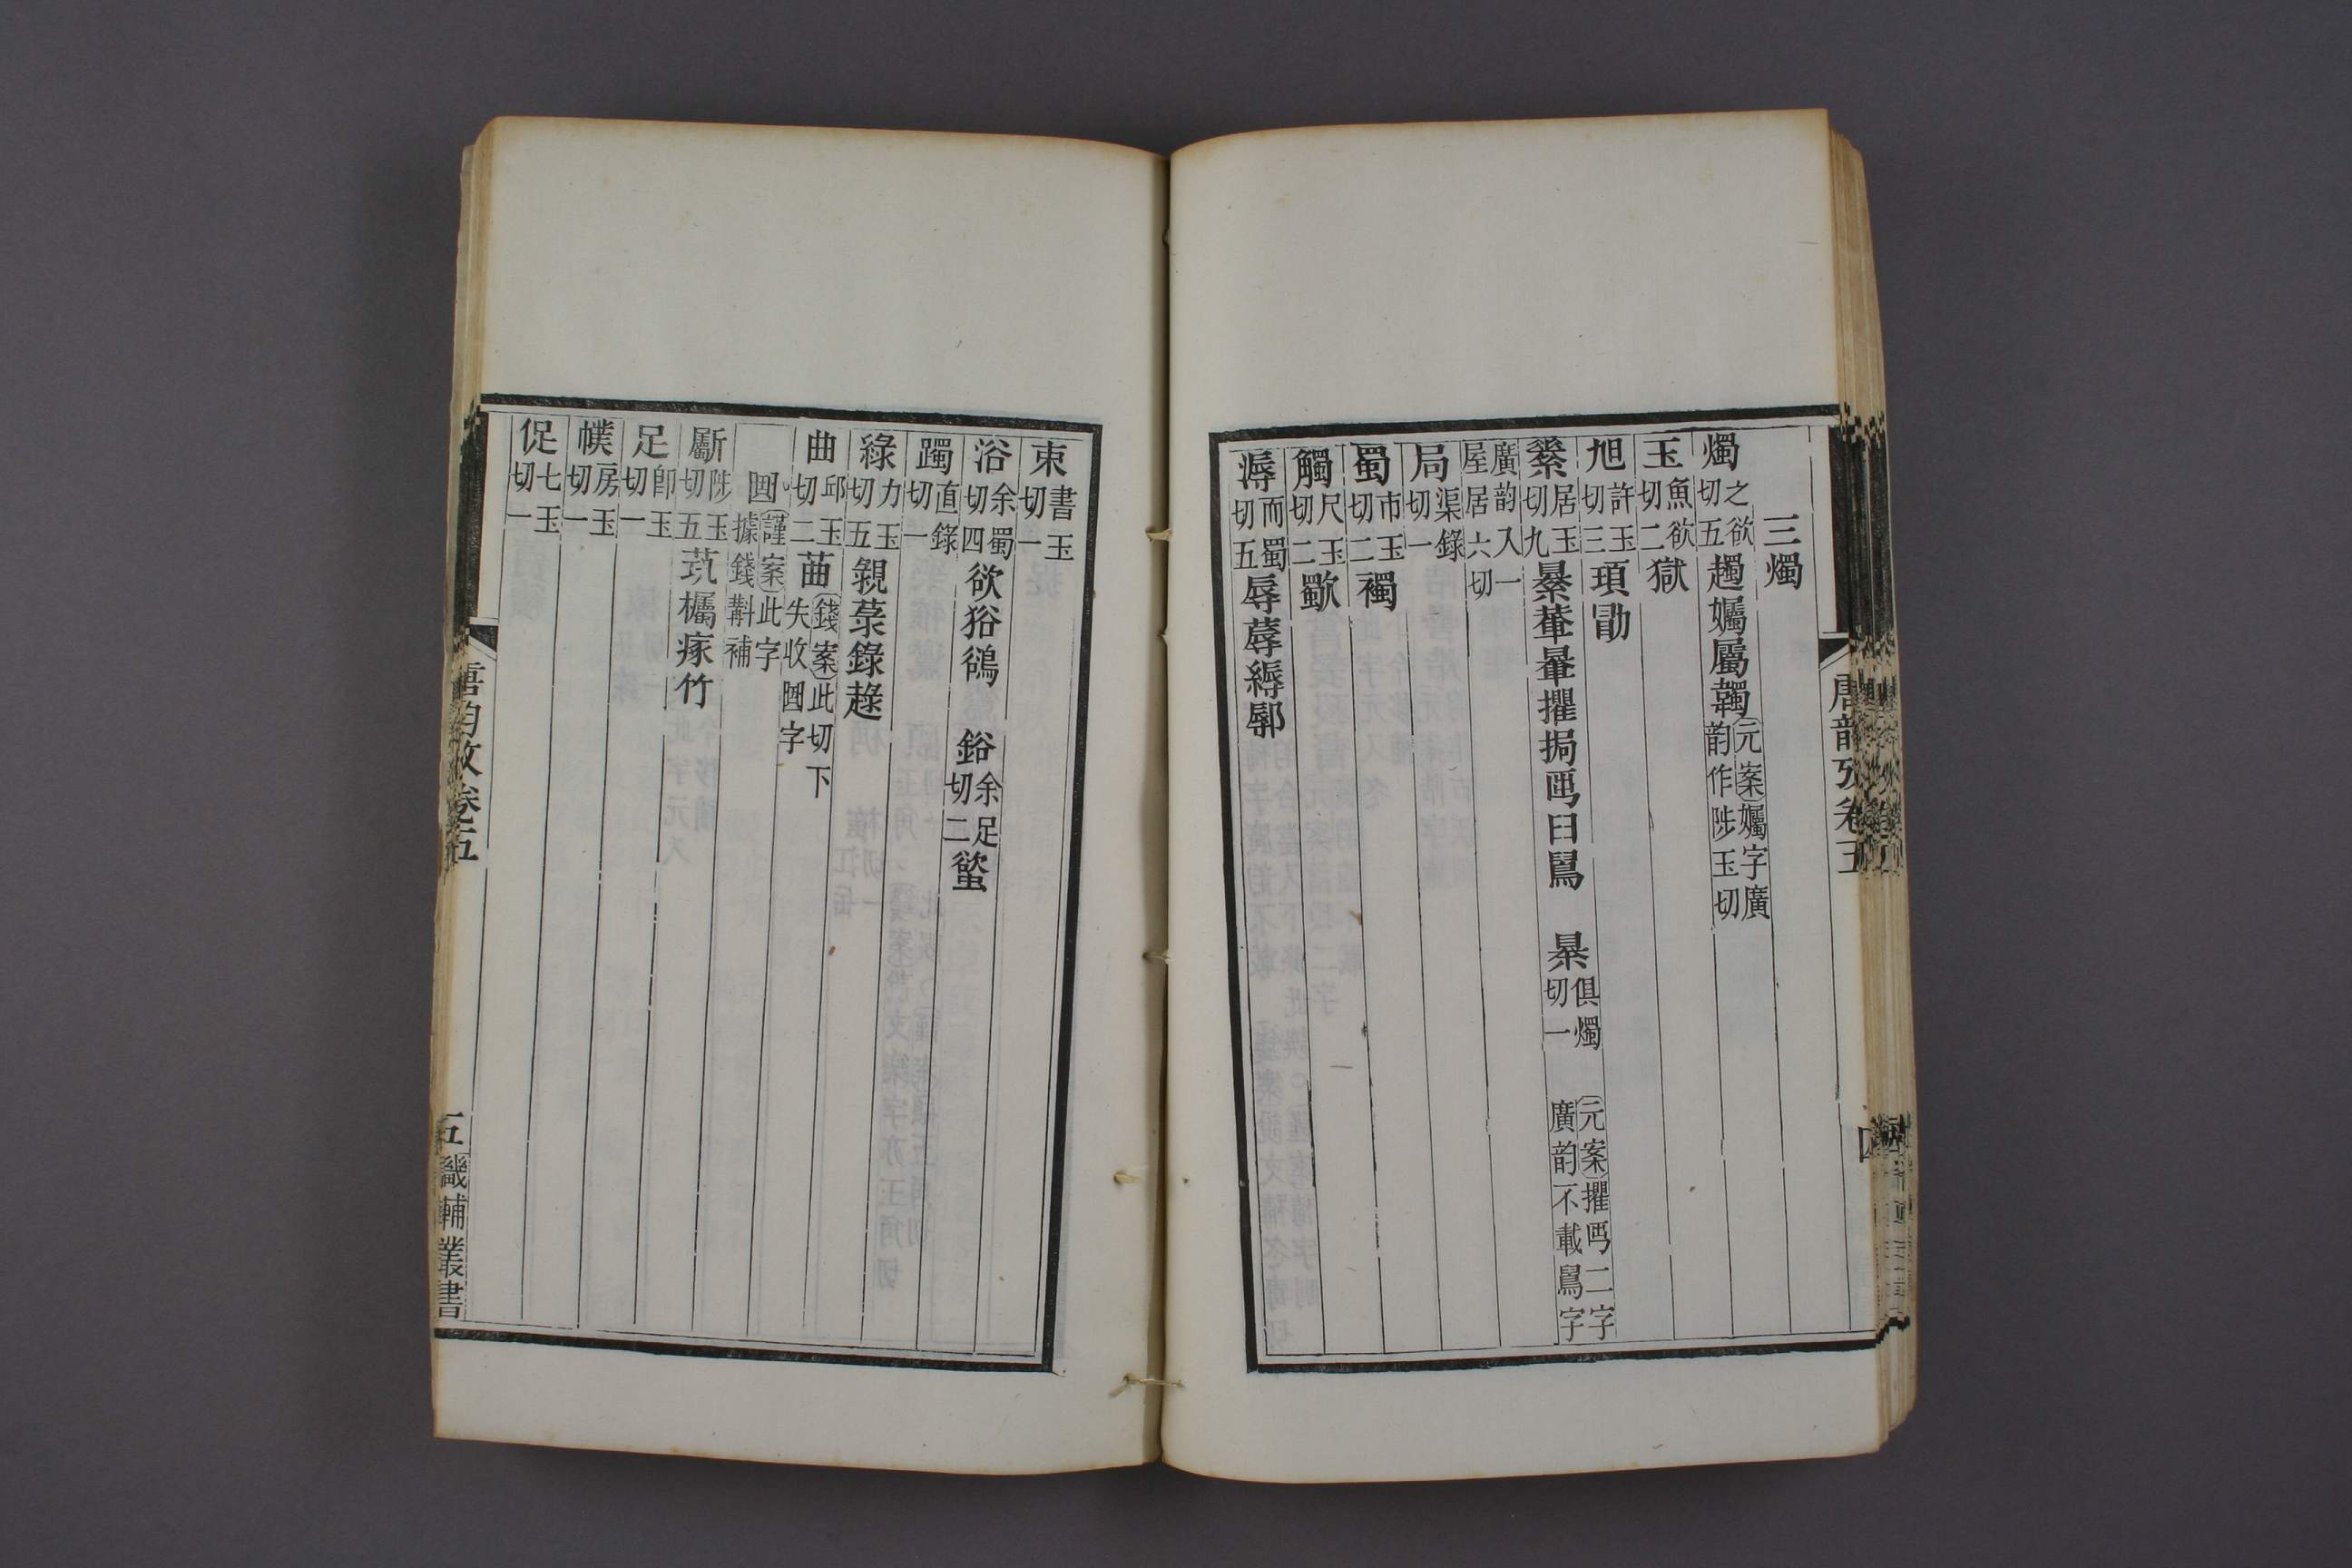 三燭
燭之欲切五 趯孎屬韣 元案孎字廣韵作陟玉切
玉魚欲切二 獄
旭許玉切三 頊勖
䋰居玉切九 暴蘽 擢挶 臼𦥑 暴俱燭切一 元案 二字廣韵不載 字
廣韵又一屋居六切
局渠錄切一
蜀市玉切二 襡
觸尺玉切二 歜
溽而蜀切五 辱蓐縟鄏
唐韵攷卷五
四
束書玉切一
浴余蜀切四 欲俗鵒 鋊余足切二 𧖅
躅直錄切一
綠力玉切五 親菉錄趢
曲邱玉切二 䒼 錢案此切下失收 字
謹案此字據錢斠補
斸陟玉切五 欘瘃竹
足卽玉切一
幞房玉切一
促七玉切一
唐韵攷卷五
五
畿輔叢書